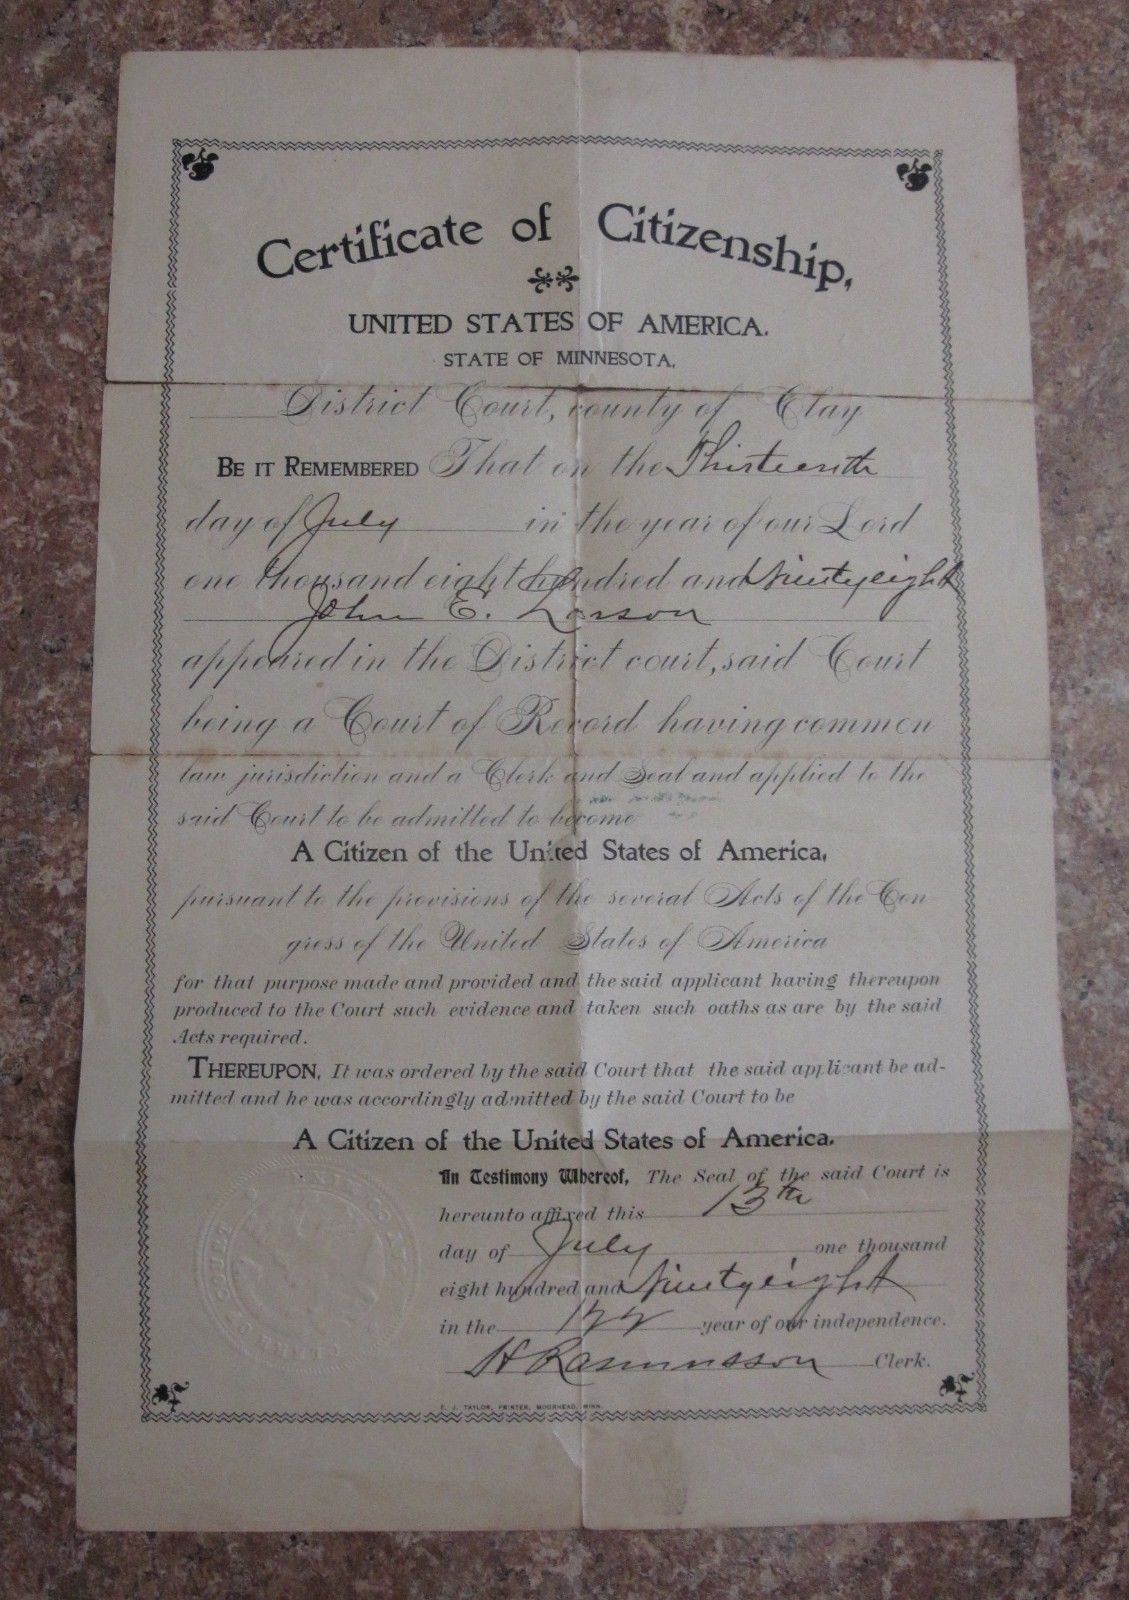 Certificate of Citizenship,
UNITED STATES OF AMERICA.
STATE OF MINNESOTA,
District Court, county of Clay
BE IT REMEMBERED That on the Thirteenth
day of July in the year of our Lord
one thousand eight hundred and Ninetyeight
John E. Larson
appeared in the District court, said Court
being a Court of Record having common
law jurisdiction and a Clerk and Seal and applied to the
said Court to be admitted to become
A Citizen of the United States of America,
pursuant to the provisions of the several Acts of the Con-
gress of the United States of America
for that purpose made and provided and the said applicant having thereupon
produced to the Court such evidence and taken such oaths as are by the said
Acts required.
THEREUPON, It was ordered by the said Court that the said applicant be ad-
mitted and he was accordingly admitted by the said Court to be
A Citizen of the United States of America.
In Testimony Whereof, The Seal of the said Court is
hereunto affixed this 13th
day of July one thousand
eight hundred and Ninetyeight
in the 122 year of our independence.
H Rasmusson Clerk.
T. J. TAYLOR, PRINTER, MOORHEAD, MINN.